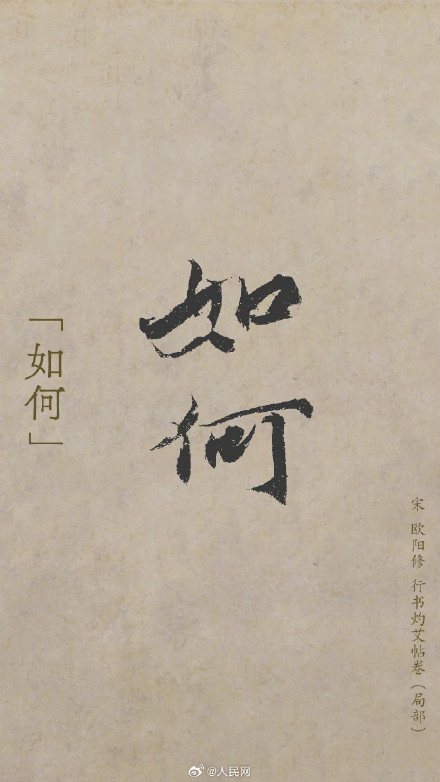 如何
「如何」
宋 欧阳修 行书灼艾帖卷（局部）
@人民网